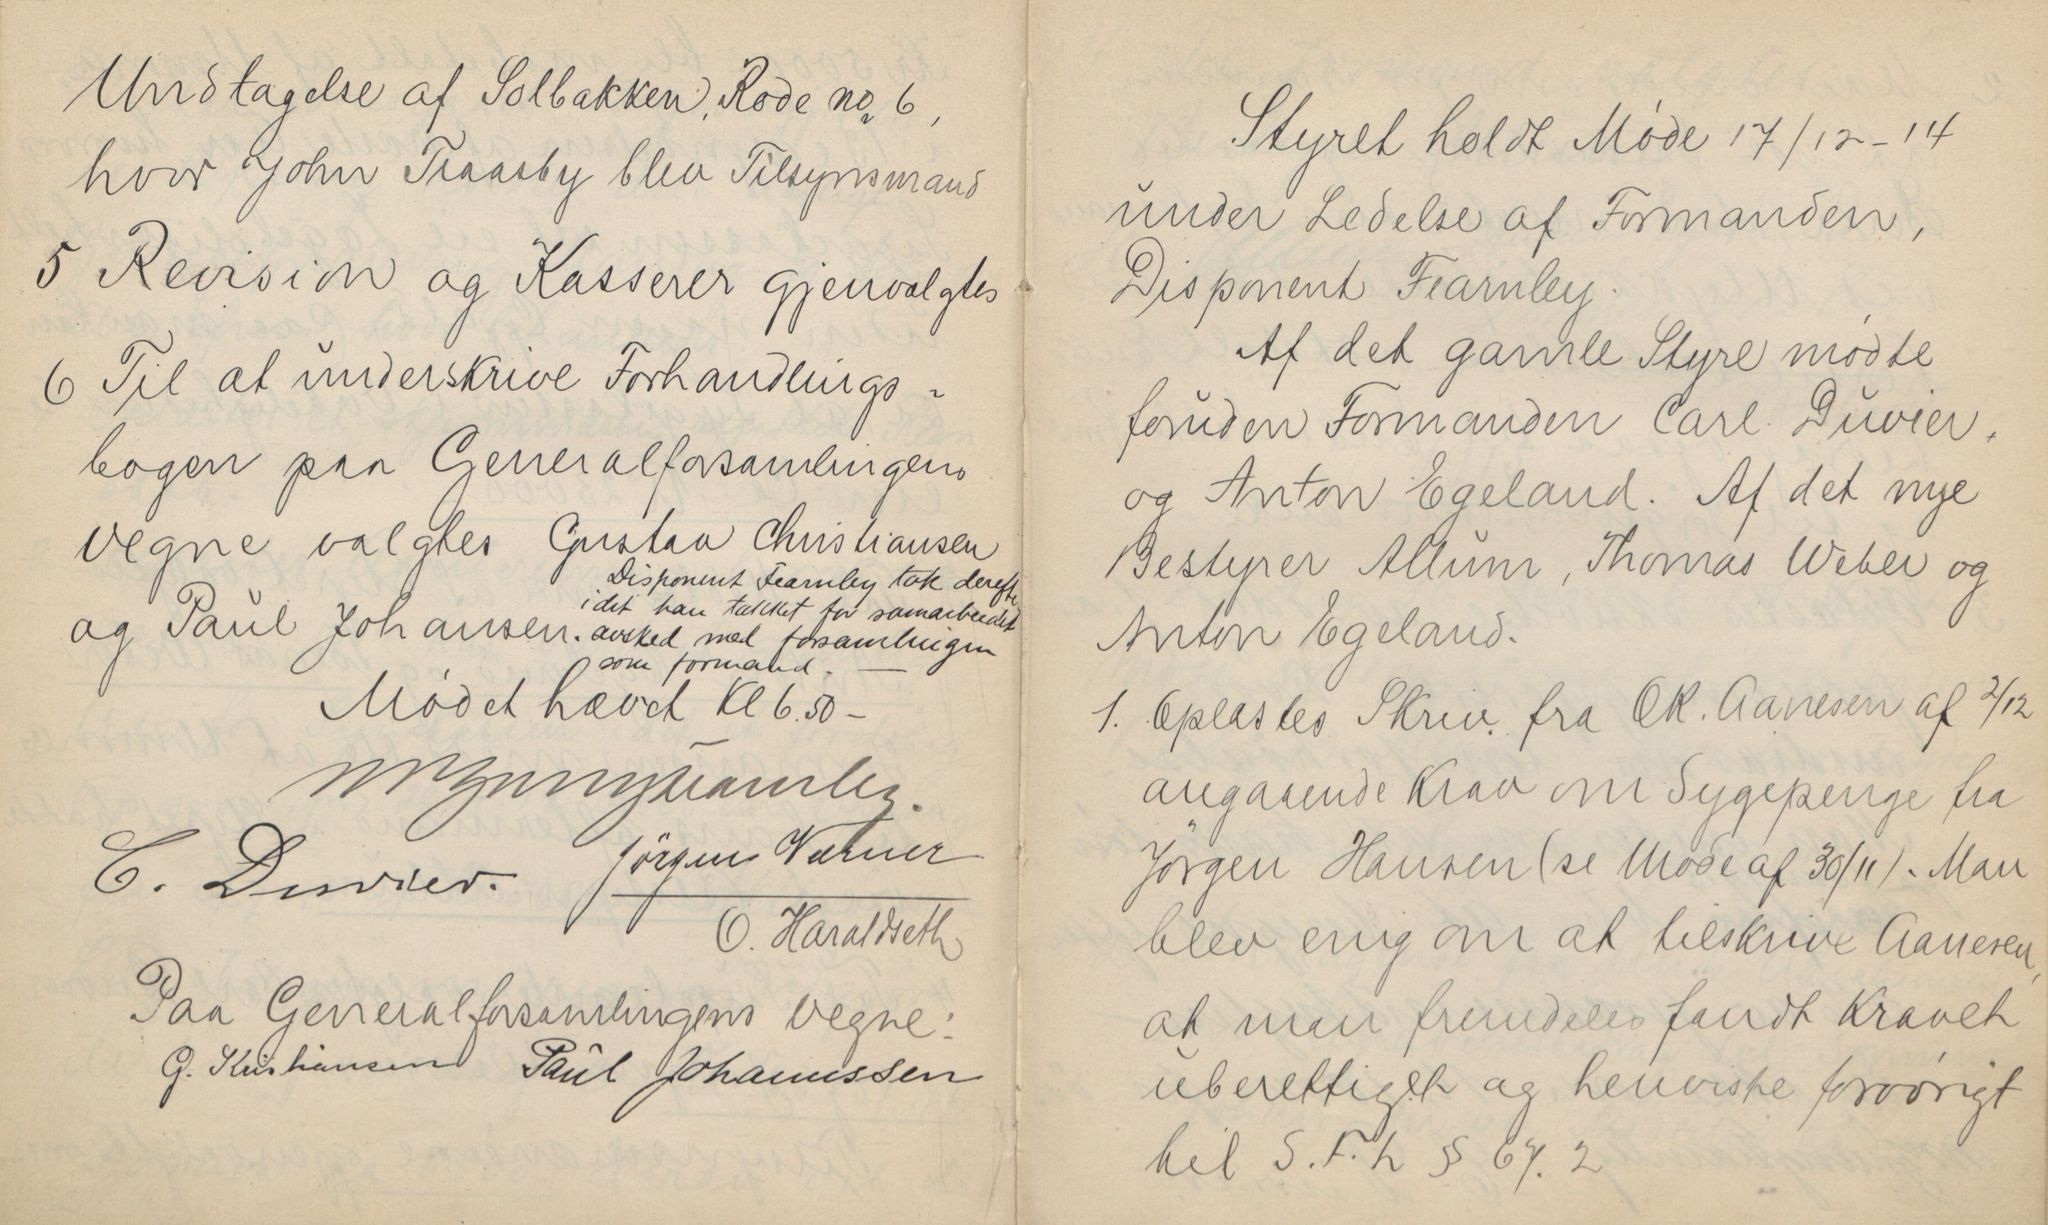 Undtagelse af Solbakken, Rode no 6,
hvor John Traasby blev Tilsynsmand
5 Revision og Kasserer gjenvalgtes
6 Til at underskrive Forhandlings-
bogen paa Generalforsamlingens
vegne valgtes Gustav Christiansen
og Paul Johansen.
Disponent Fearnley tok derefter
idet han takket for samarbeidet
avsked med forsamlingen
som formand. —
Mødet hævet Kl 6.50 –
Fearnley.
C. Duvier.
Jörgen Værner
O. Haraldseth
Paa Generalforsamlingens vegne:
G. Kristiansen Paul Johannssen
Styret holdt Møde 17/12-14
under Ledelse af Formanden,
Disponent Fearnley.
Af det gamle Styre mødte
foruden Formanden Carl Duvier,
og Anton Egeland. Af det nye
Bestyrer Allum, Thomas Weber og
Anton Egeland.
1. Oplæstes Skriv. fra OK. Aanesen af 2/12
angaaende Krav om Sygepenge fra
Jörgen Hansen (se Møde af 30/11). Man
blev enig om at tilskrive Aanesen,
at man fremdeles fandt Kravet
uberettiget og henviste forøvrigt
til S.F.L § 67.2